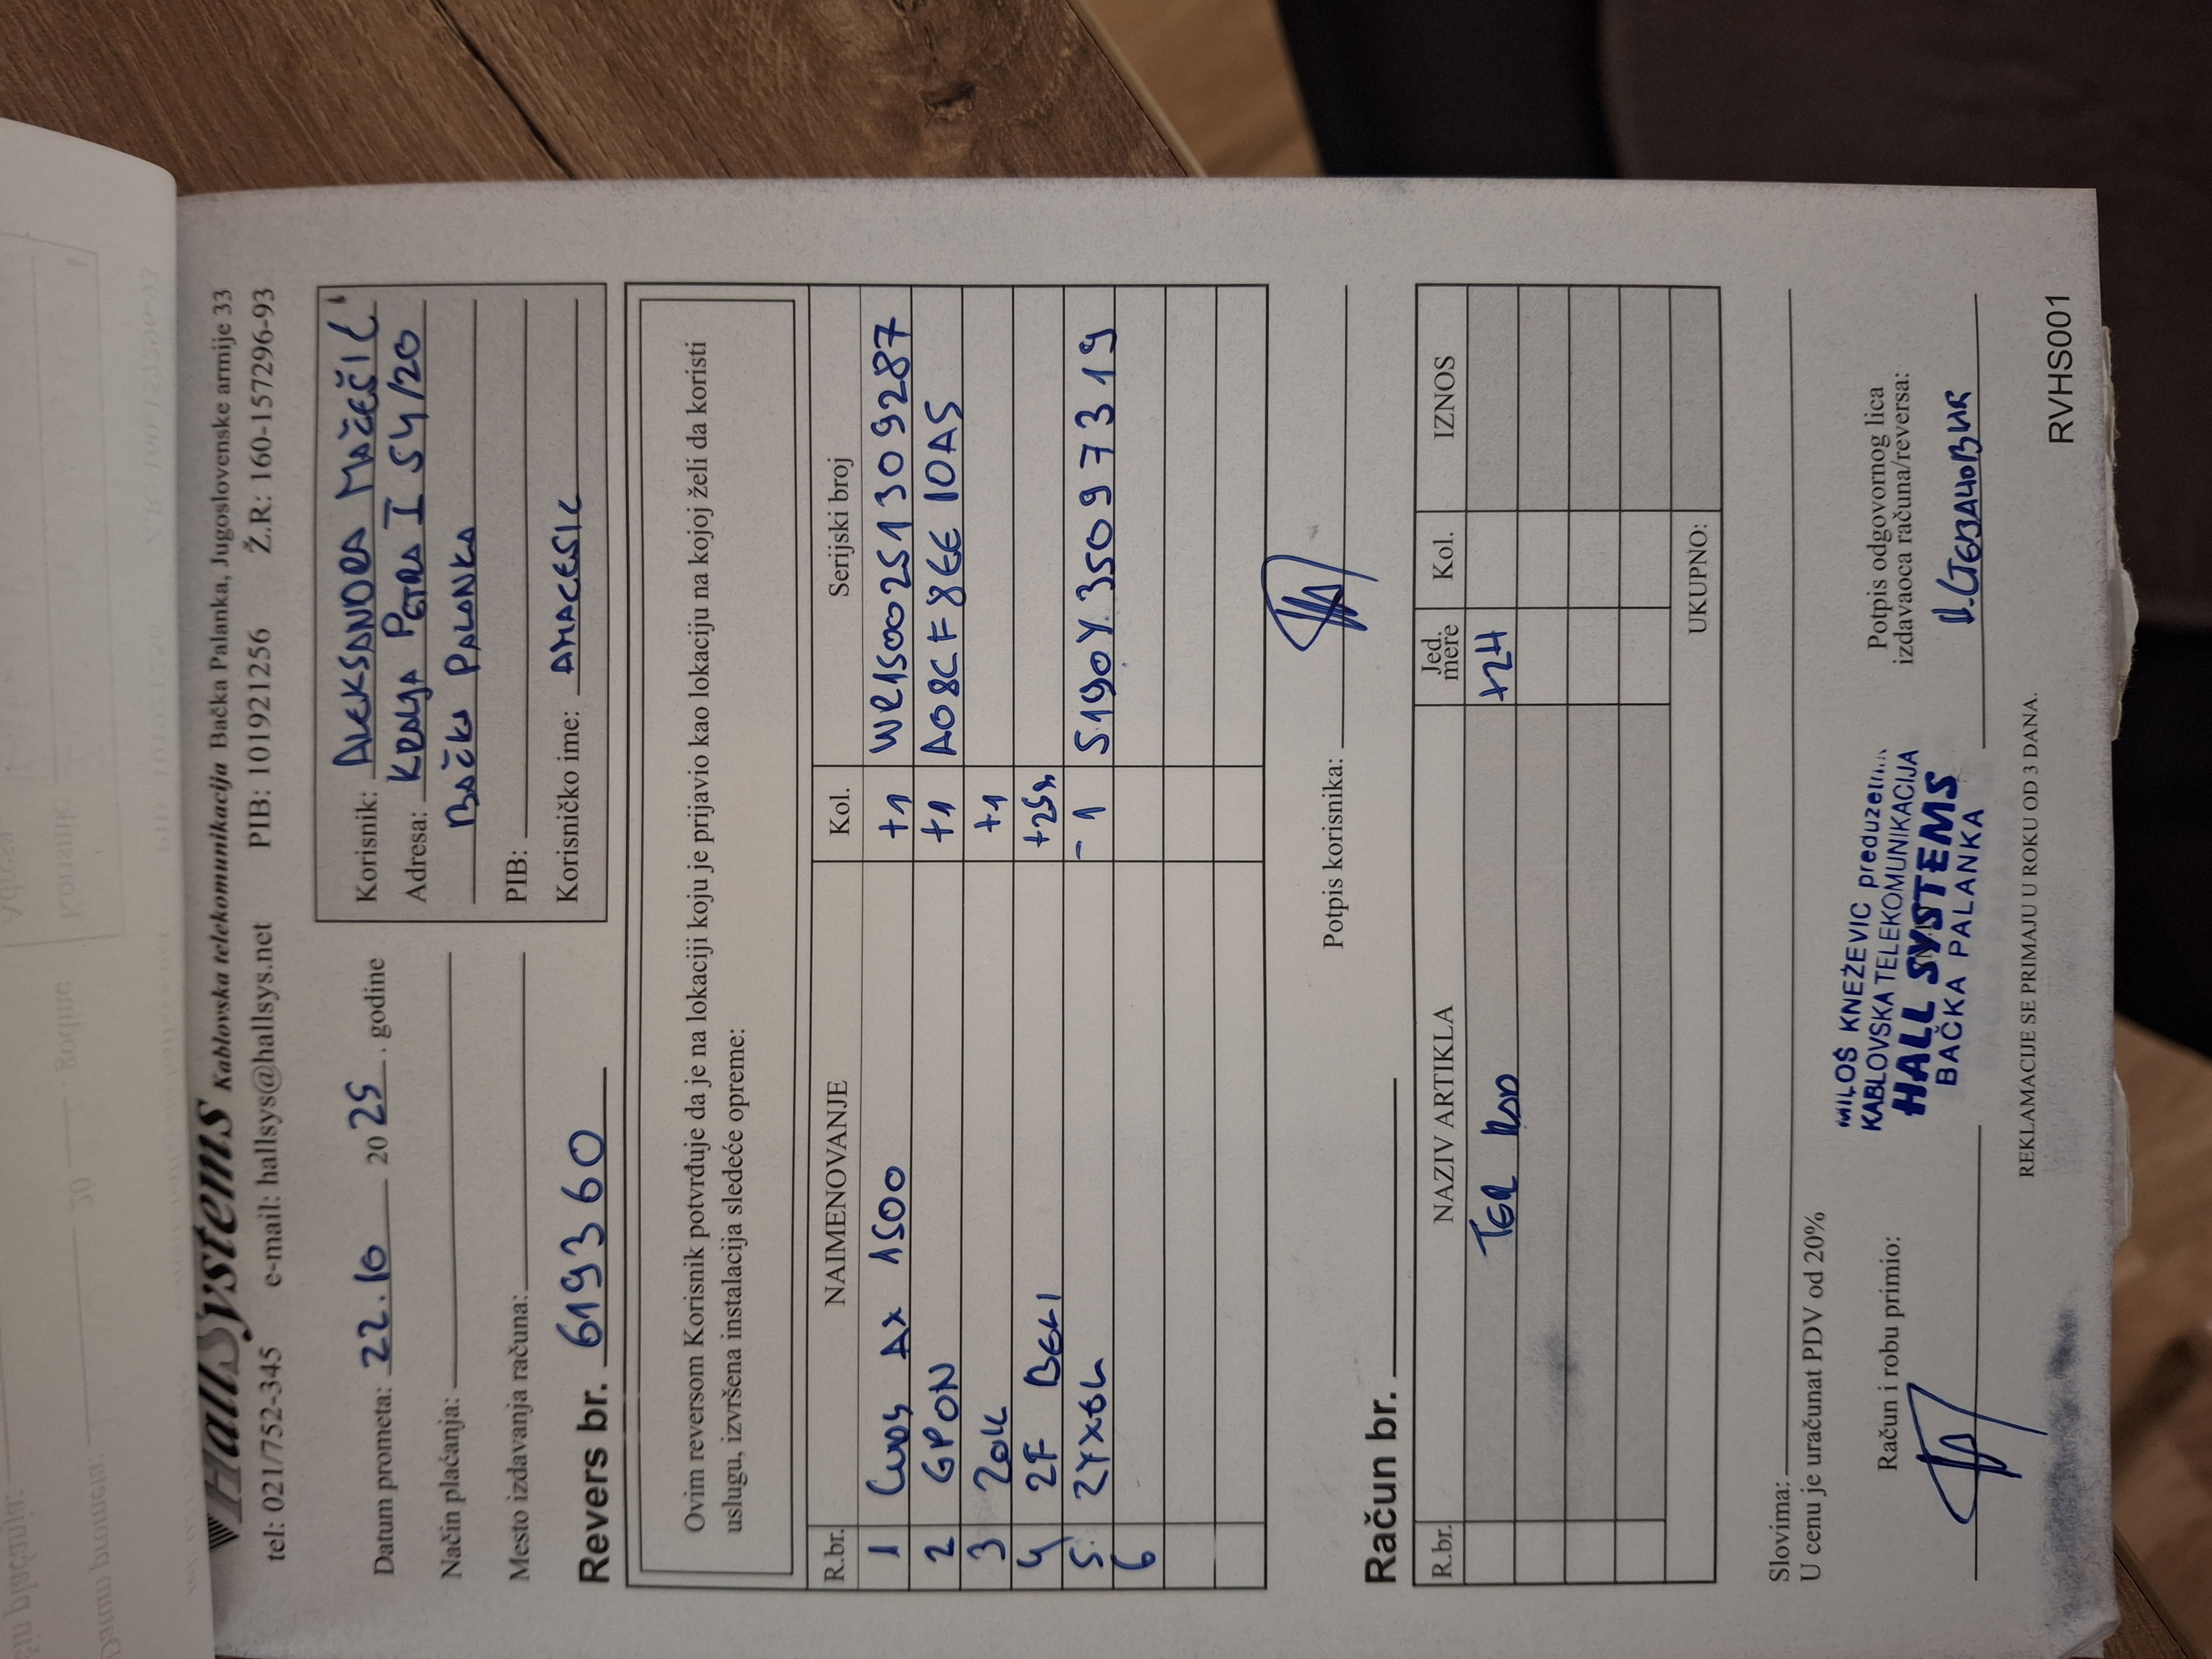 HallSystems Kablovska telekomunikacija Bačka Palanka, Jugoslovenske armije 33
tel: 021/752-345 e-mail: hallsys@hallsys.net PIB: 101921256 Ž.R.: 160-157296-93
Datum prometa: 22.10 2025. godine
Način plaćanja:
Mesto izdavanja računa:
Revers br. 619360
Korisnik: ALEKSANDRA MAČEŠIĆ
Adresa: KRALJA PETRA I 54/20
BAČKA PALANKA
PIB:
Korisničko ime: AMACESIC
Ovim reversom Korisnik potvrđuje da je na lokaciji koju je prijavio kao lokaciju na kojoj želi da koristi
uslugu, izvršena instalacija sledeće opreme:
R.br. NAIMENOVANJE Kol. Serijski broj
1 AX 1500 +1 WR1500251309287
2 GPON +1 A08CF8EE10A5
3 +1
4 2F BELI +25m
5. ZYXEL -1 S190Y35097319
6
Potpis korisnika:
Račun br.
R.br. NAZIV ARTIKLA Jed. mere Kol. IZNOS
+24
UKUPNO:
Slovima:
U cenu je uračunat PDV od 20%
Račun i robu primio:
MILOŠ KNEŽEVIĆ preduzetnik
KABLOVSKA TELEKOMUNIKACIJA
HALL SYSTEMS
BAČKA PALANKA
Potpis odgovornog lica
izdavaoca računa/reversa:
REKLAMACIJE SE PRIMAJU U ROKU OD 3 DANA.
RVHS001